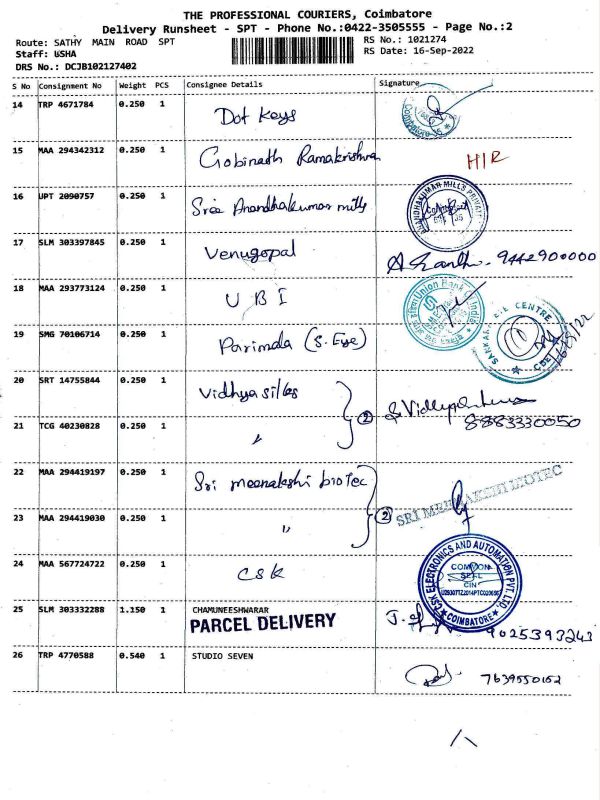 THE PROFESSIONAL COURIERS, Coimbatore
Delivery Runsheet - SPT - Phone No.:0422-3505555 - Page No.:2
Route: SATHY MAIN ROAD SPT
RS No.: 1021274
Staff: USHA
RS Date: 16-Sep-2022
DRS No.: DCJB102127402
S No Consignment No Weight PCS Consignee Details Signature
14 TRP 4671784 0.250 1 Dot Keys
Coimbatore
15 MAA 294342312 0.250 1 Gobinath Ramakrishna HIR
16 UPT 2090757 0.250 1 Sree Anandhakumar mills
ANANDHAKUMAR MILLS PRIVATE
17 SLM 303397845 0.250 1 Venugopal 9442900000
18 MAA 293773124 0.250 1 UBI
Union Bank of India
19 SMG 70106714 0.250 1 Parimala (S. Eye)
SANKARA EYE CENTRE
20 SRT 14755844 0.250 1 Vidhya silks
② 8883330050
21 TCG 40230828 0.250 1 "
22 MAA 294419197 0.250 1 Sri meenakshi biotec
② SRI MEENAKSHI BIOTEC
23 MAA 294419030 0.250 1 "
24 MAA 567724722 0.250 1 CSK
CSK ELECTRONICS AND AUTOMATION PVT. LTD.
COMMON
SEAL
CIN
COIMBATORE
25 SLM 303332288 1.150 1 CHAMUNEESHWARAR
PARCEL DELIVERY
9025393243
26 TRP 4770588 0.540 1 STUDIO SEVEN
7639550152